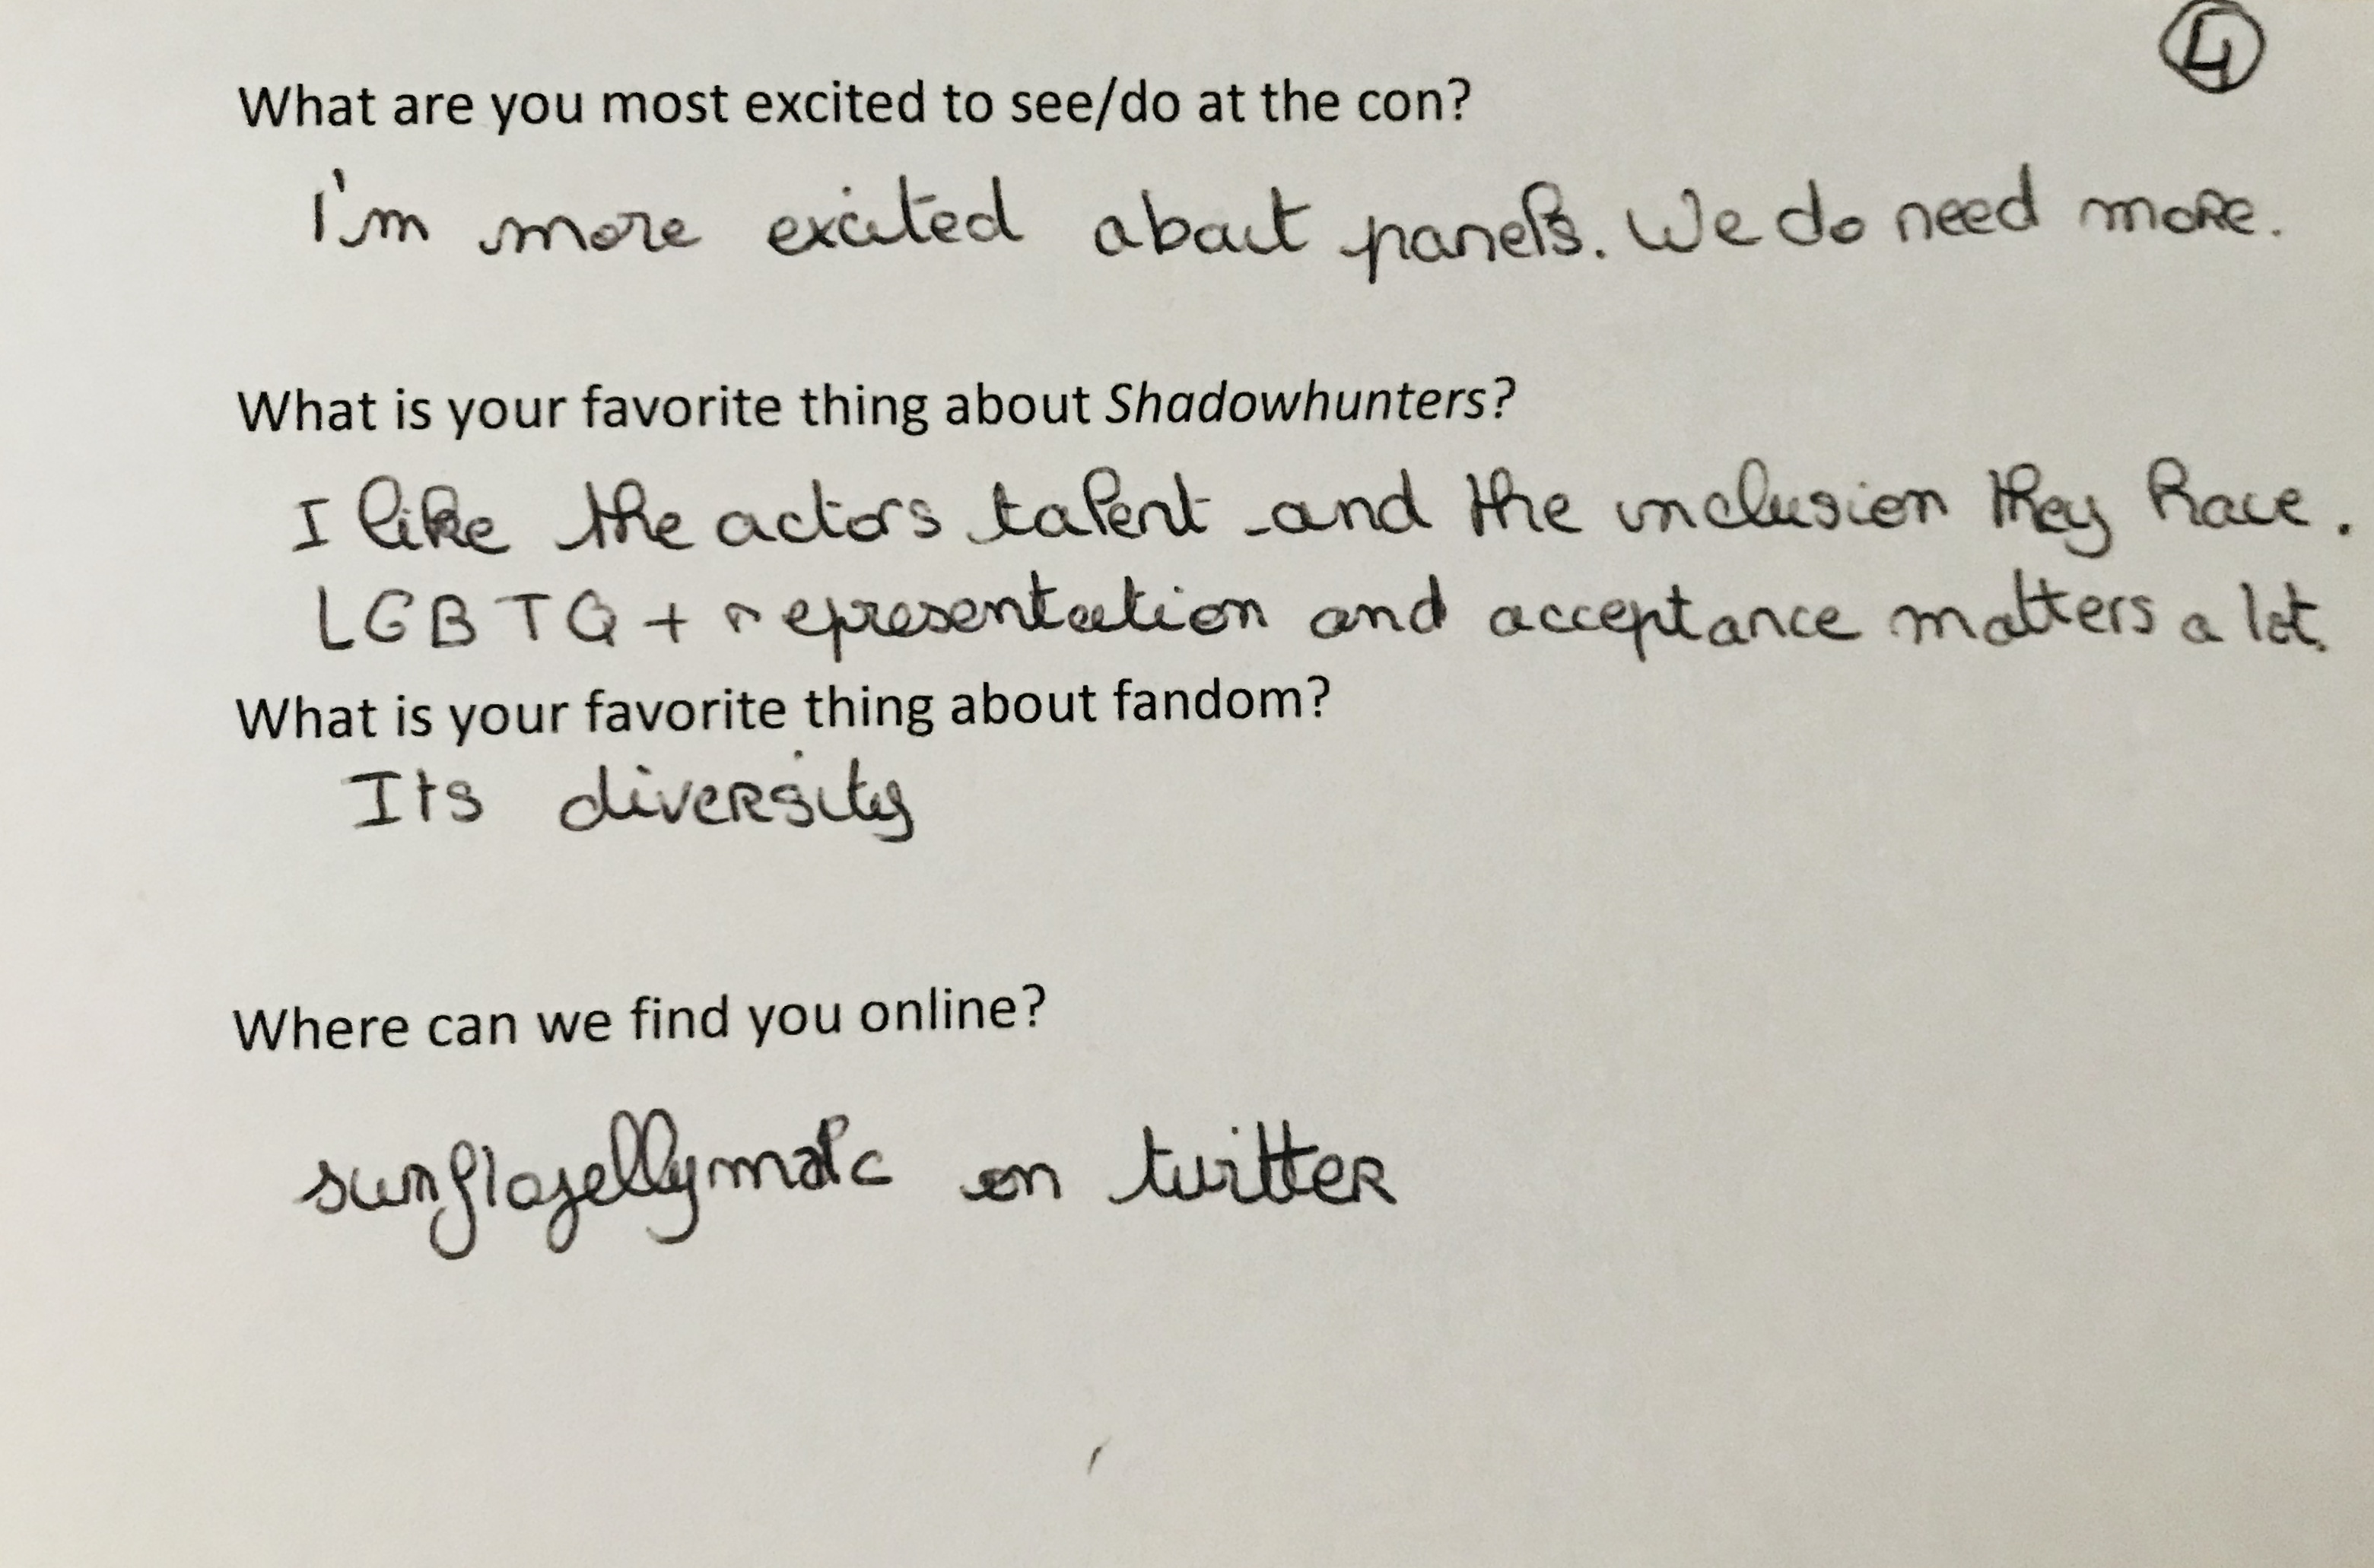 4
What are you most excited to see/do at the con?
I'm more excited about panels. We do need more.
What is your favorite thing about Shadowhunters?
I like the actors talent and the inclusion they have.
LGBTQ+ representation and acceptance matters a lot.
What is your favorite thing about fandom?
Its diversity
Where can we find you online?
on twitter